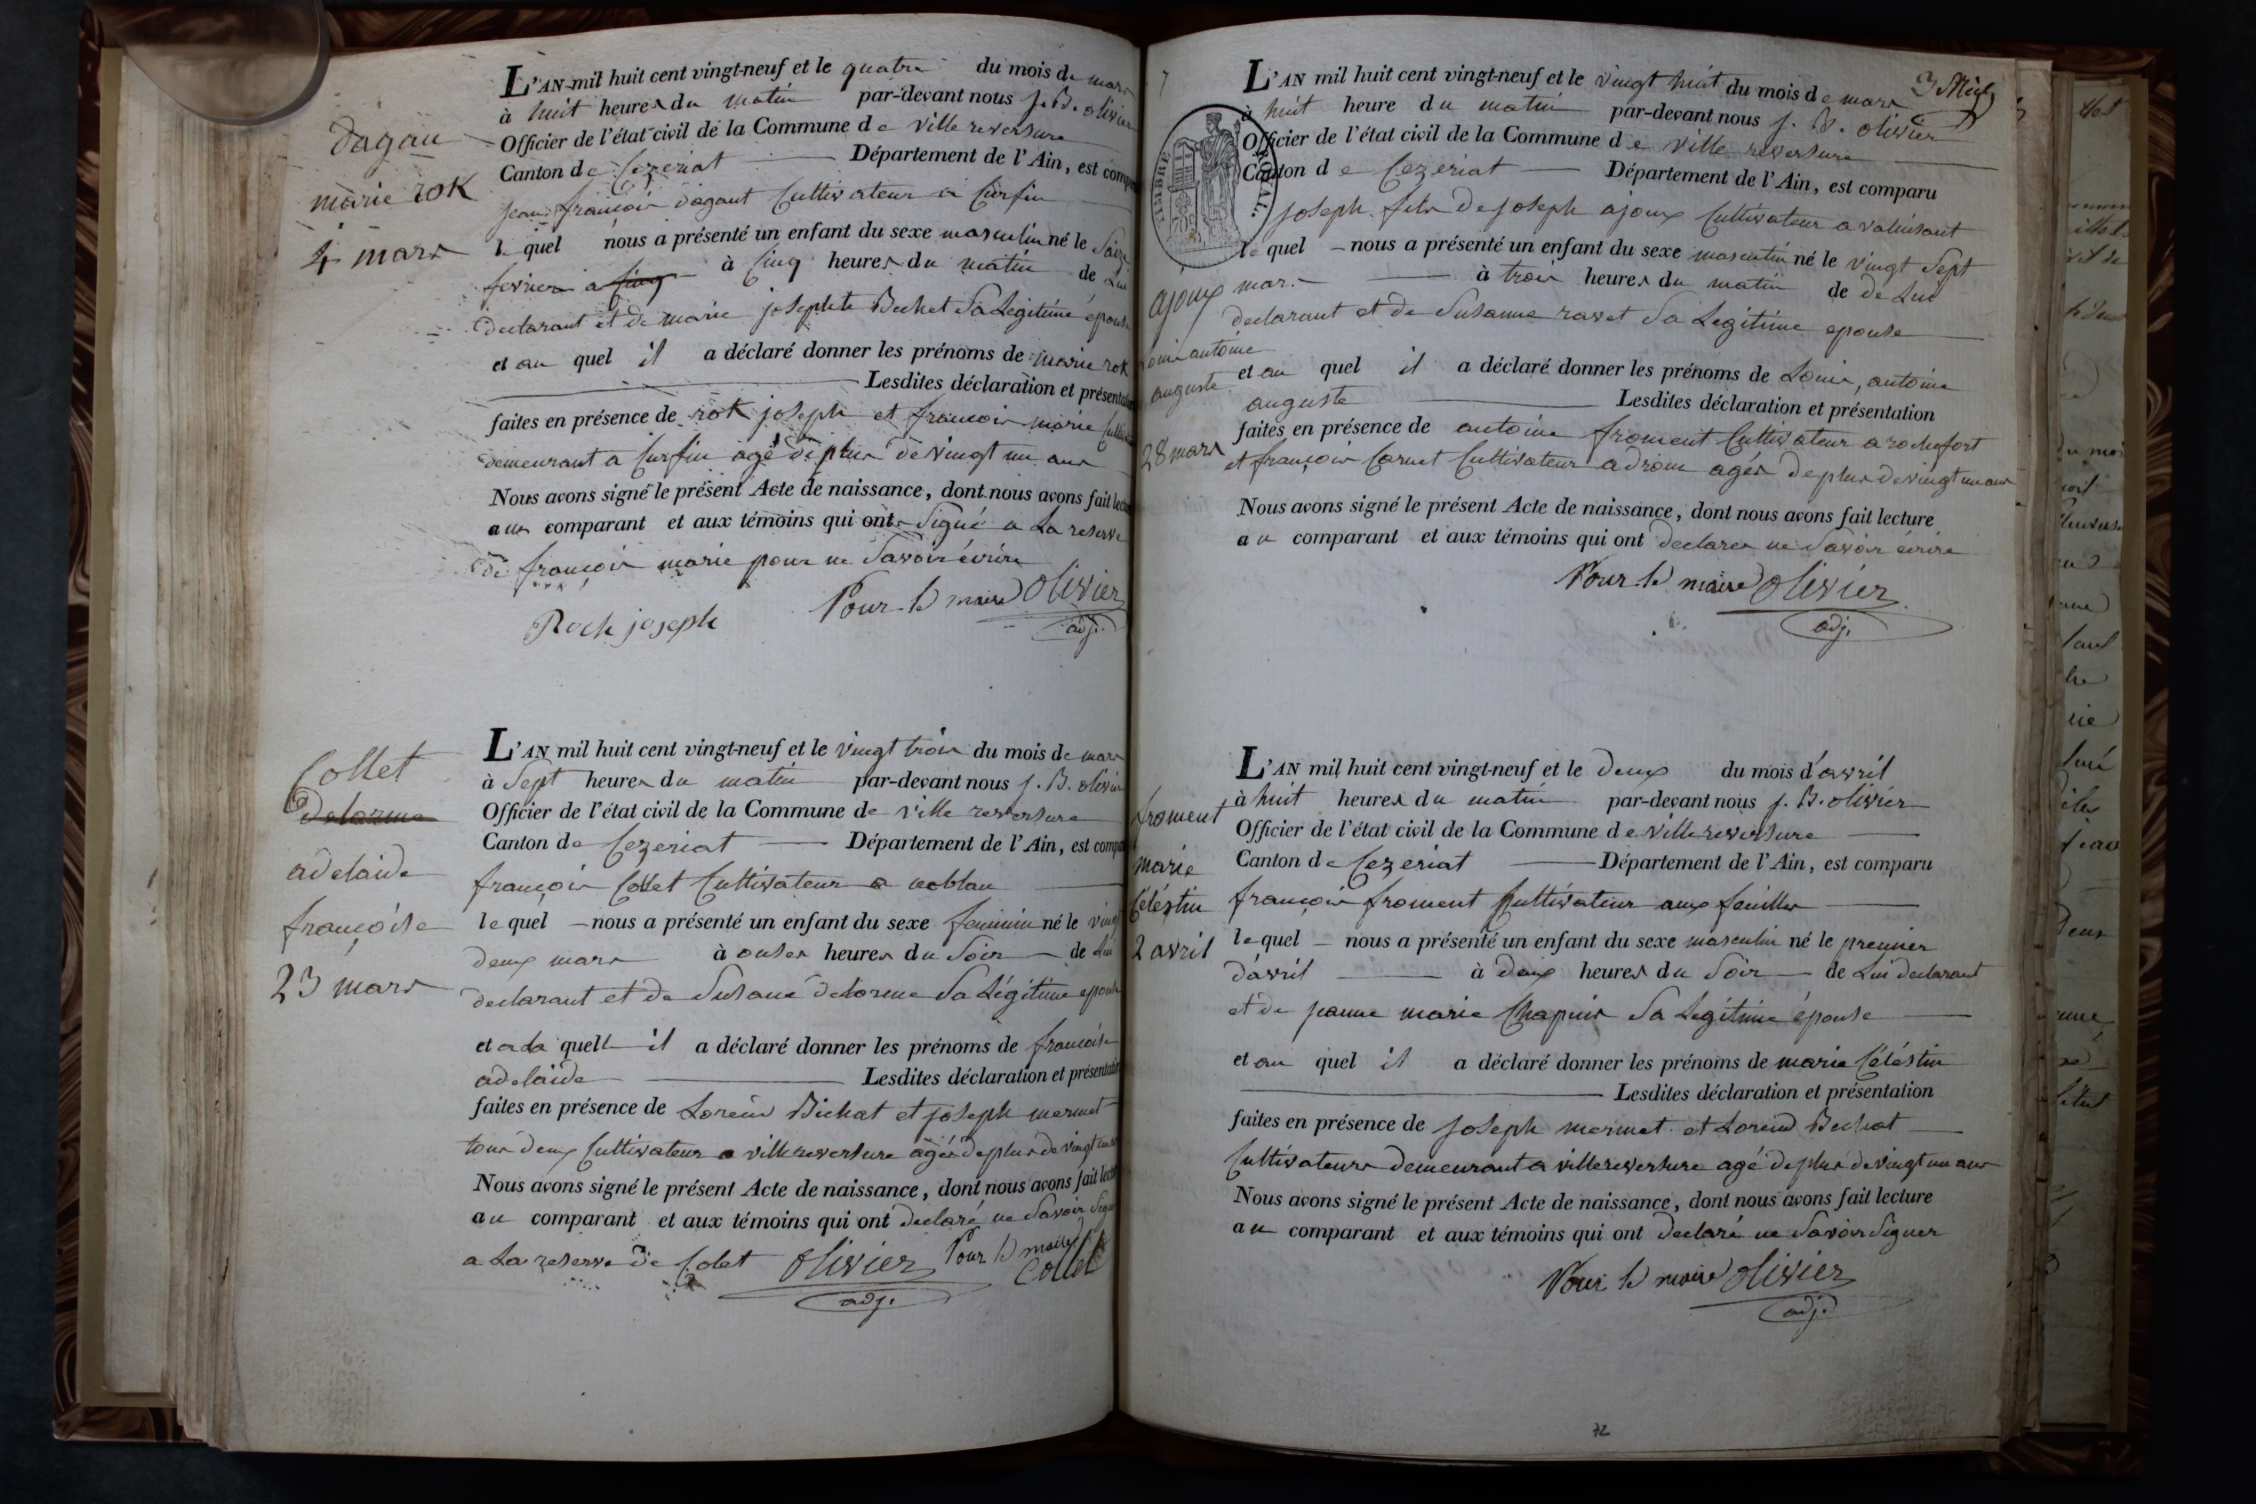 dagau
marie rok
4 mars
L'AN mil huit cent vingt-neuf et le quatre du mois de mars
à huit heures du matin par-devant nous J. B. olivier
Officier de l'état civil de la Commune de ville reversure
Canton de Cezeriat Département de l'Ain, est comp
jean françois dagaut Cultivateur a Curfin
le quel nous a présenté un enfant du sexe masculin né le Saize
fevrier a cinq à Cinq heures du matin de Lui
declarant et de marie josephte Bechet Sa Legitime épouse
et au quel il a déclaré donner les prénoms de marie rok
Lesdites déclaration et présentation
faites en présence de rok joseph et françois marie
demeurant a Curfin agé de plus de vingt un ans
Nous avons signé le présent Acte de naissance, dont nous avons fait lect
aux comparant et aux témoins qui ont Signé a La reserve
de françois marie pour ne Savoir écrire
Roch joseph Pour le maire Olivier
adj.
Collet
Delorme
adelaide
françoise
23 mars
L'AN mil huit cent vingt-neuf et le vingt trois du mois de mars
à Sept heures du matin par-devant nous J. B. olivier
Officier de l'état civil de la Commune de ville reversure
Canton de Cezeriat Département de l'Ain, est comp
françois Collet Cultivateur a noblau
le quel nous a présenté un enfant du sexe feminin né le vingt
deux mars à onses heures du Soir de Lui
declarant et de Susane delorme Sa Légitime epouse
et a la quelle il a déclaré donner les prénoms de françoise
adelaide Lesdites déclaration et présentation
faites en présence de Lorend Bichat et joseph mermet
tous deux Cultivateur a villereversure agés de plus de vingt un ans
Nous avons signé le présent Acte de naissance, dont nous avons fait lect
au comparant et aux témoins qui ont declaré ne Savoir Signer
a La reserve de Colet Olivier Pour le maire
Collet
adj.
L'AN mil huit cent vingt-neuf et le vingt huit du mois de mars
à huit heure du matin par-devant nous J. B. olivier
Officier de l'état civil de la Commune de ville reversure
Canton de Cezeriat Département de l'Ain, est comparu
TIMBRE ROYAL.
joseph fils de joseph ajoux Cultivateur a valuisant
le quel nous a présenté un enfant du sexe masculin né le vingt Sept
mars à trois heures du matin de de Lui
declarant et de Susanne ravet Sa Legitime epouse
et au quel il a déclaré donner les prénoms de Louis, antoine
auguste Lesdites déclaration et présentation
faites en présence de antoine froment Cultivateur a rochefort
et françois Carnet Cultivateur a drom agés de plus de vingt un ans
Nous avons signé le présent Acte de naissance, dont nous avons fait lecture
au comparant et aux témoins qui ont declarer ne Savoir écrire
Pour le maire Olivier
adj.
ajoux
Louis antoine
auguste
28 mars
froment
marie
Céléstin
2 avril
L'AN mil huit cent vingt-neuf et le deux du mois d'avril
à huit heures du matin par-devant nous J. B. olivier
Officier de l'état civil de la Commune de villereversure
Canton de Cezeriat Département de l'Ain, est comparu
françois froment Cultivateur aux feuilles
le quel nous a présenté un enfant du sexe masculin né le premier
d'avril à deux heures du Soir de Lui declarant
et de jeanne marie Chapuis Sa Legitime épouse
et au quel il a déclaré donner les prénoms de marie Céléstin
Lesdites déclaration et présentation
faites en présence de joseph mermet et Lorend Bechat
Cultivateurs demeurant a villereversure agé de plus de vingt un ans
Nous avons signé le présent Acte de naissance, dont nous avons fait lecture
au comparant et aux témoins qui ont declaré ne Savoir Signer
Pour le maire Olivier
adj.
72